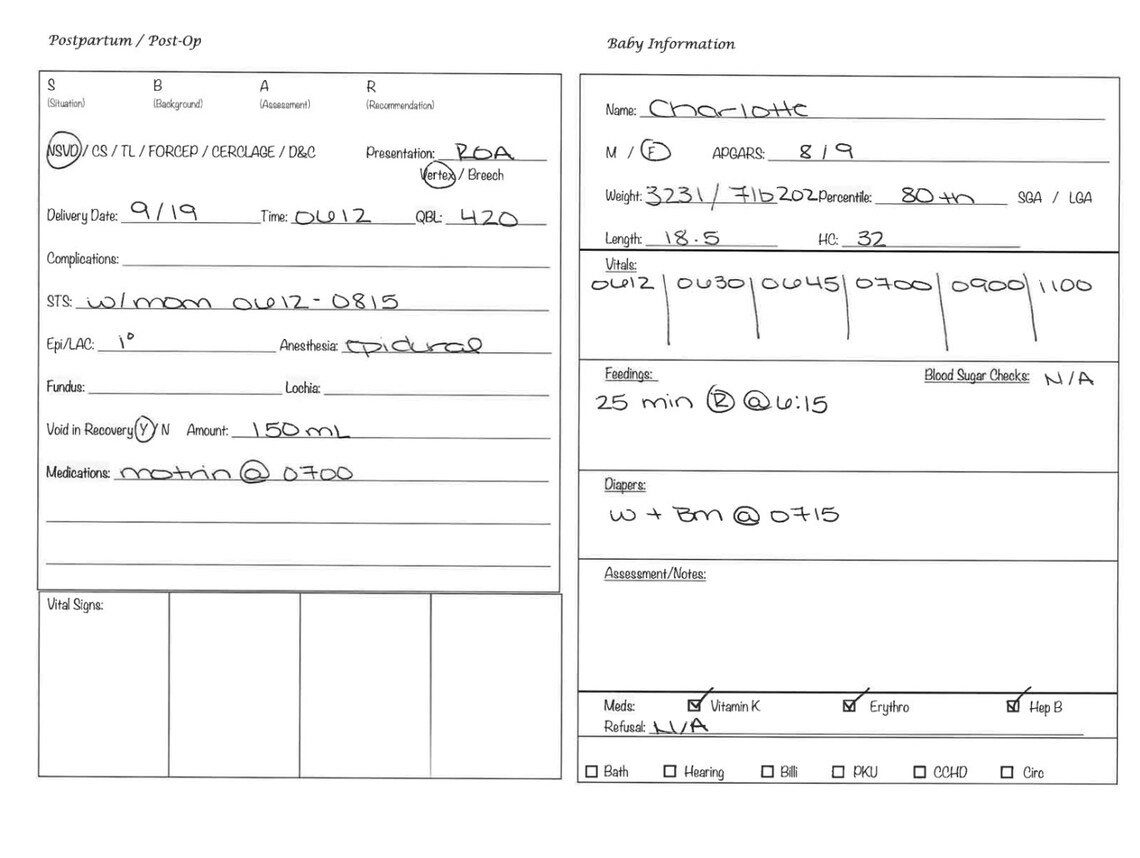 Postpartum / Post-Op
S B A R
(Situation) (Background) (Assessment) (Recommendation)
NSVD / CS / TL / FORCEP / CERCLAGE / D&C Presentation: ROA
Vertex / Breech
Delivery Date: 9/19 Time: 0612 QBL: 420
Complications:
STS: w/mom 0612-0815
Epi/LAC: 1° Anesthesia: epidural
Fundus: Lochia:
Void in Recovery Y/N Amount: 150mL
Medications: motrin @ 0700
Vital Signs:
Baby Information
Name: Charlotte
M / F APGARS: 8/9
Weight: 3231 / 7lb2oz Percentile: 80th SGA / LGA
Length: 18.5 HC: 32
Vitals:
0612 0630 0645 0700 0900 1100
Feedings: Blood Sugar Checks: N/A
25 min R @ 6:15
Diapers:
W + BM @ 0715
Assessment/Notes:
Meds: Vitamin K Erythro Hep B
Refusal: N/A
Bath Hearing Billi PKU CCHD Circ